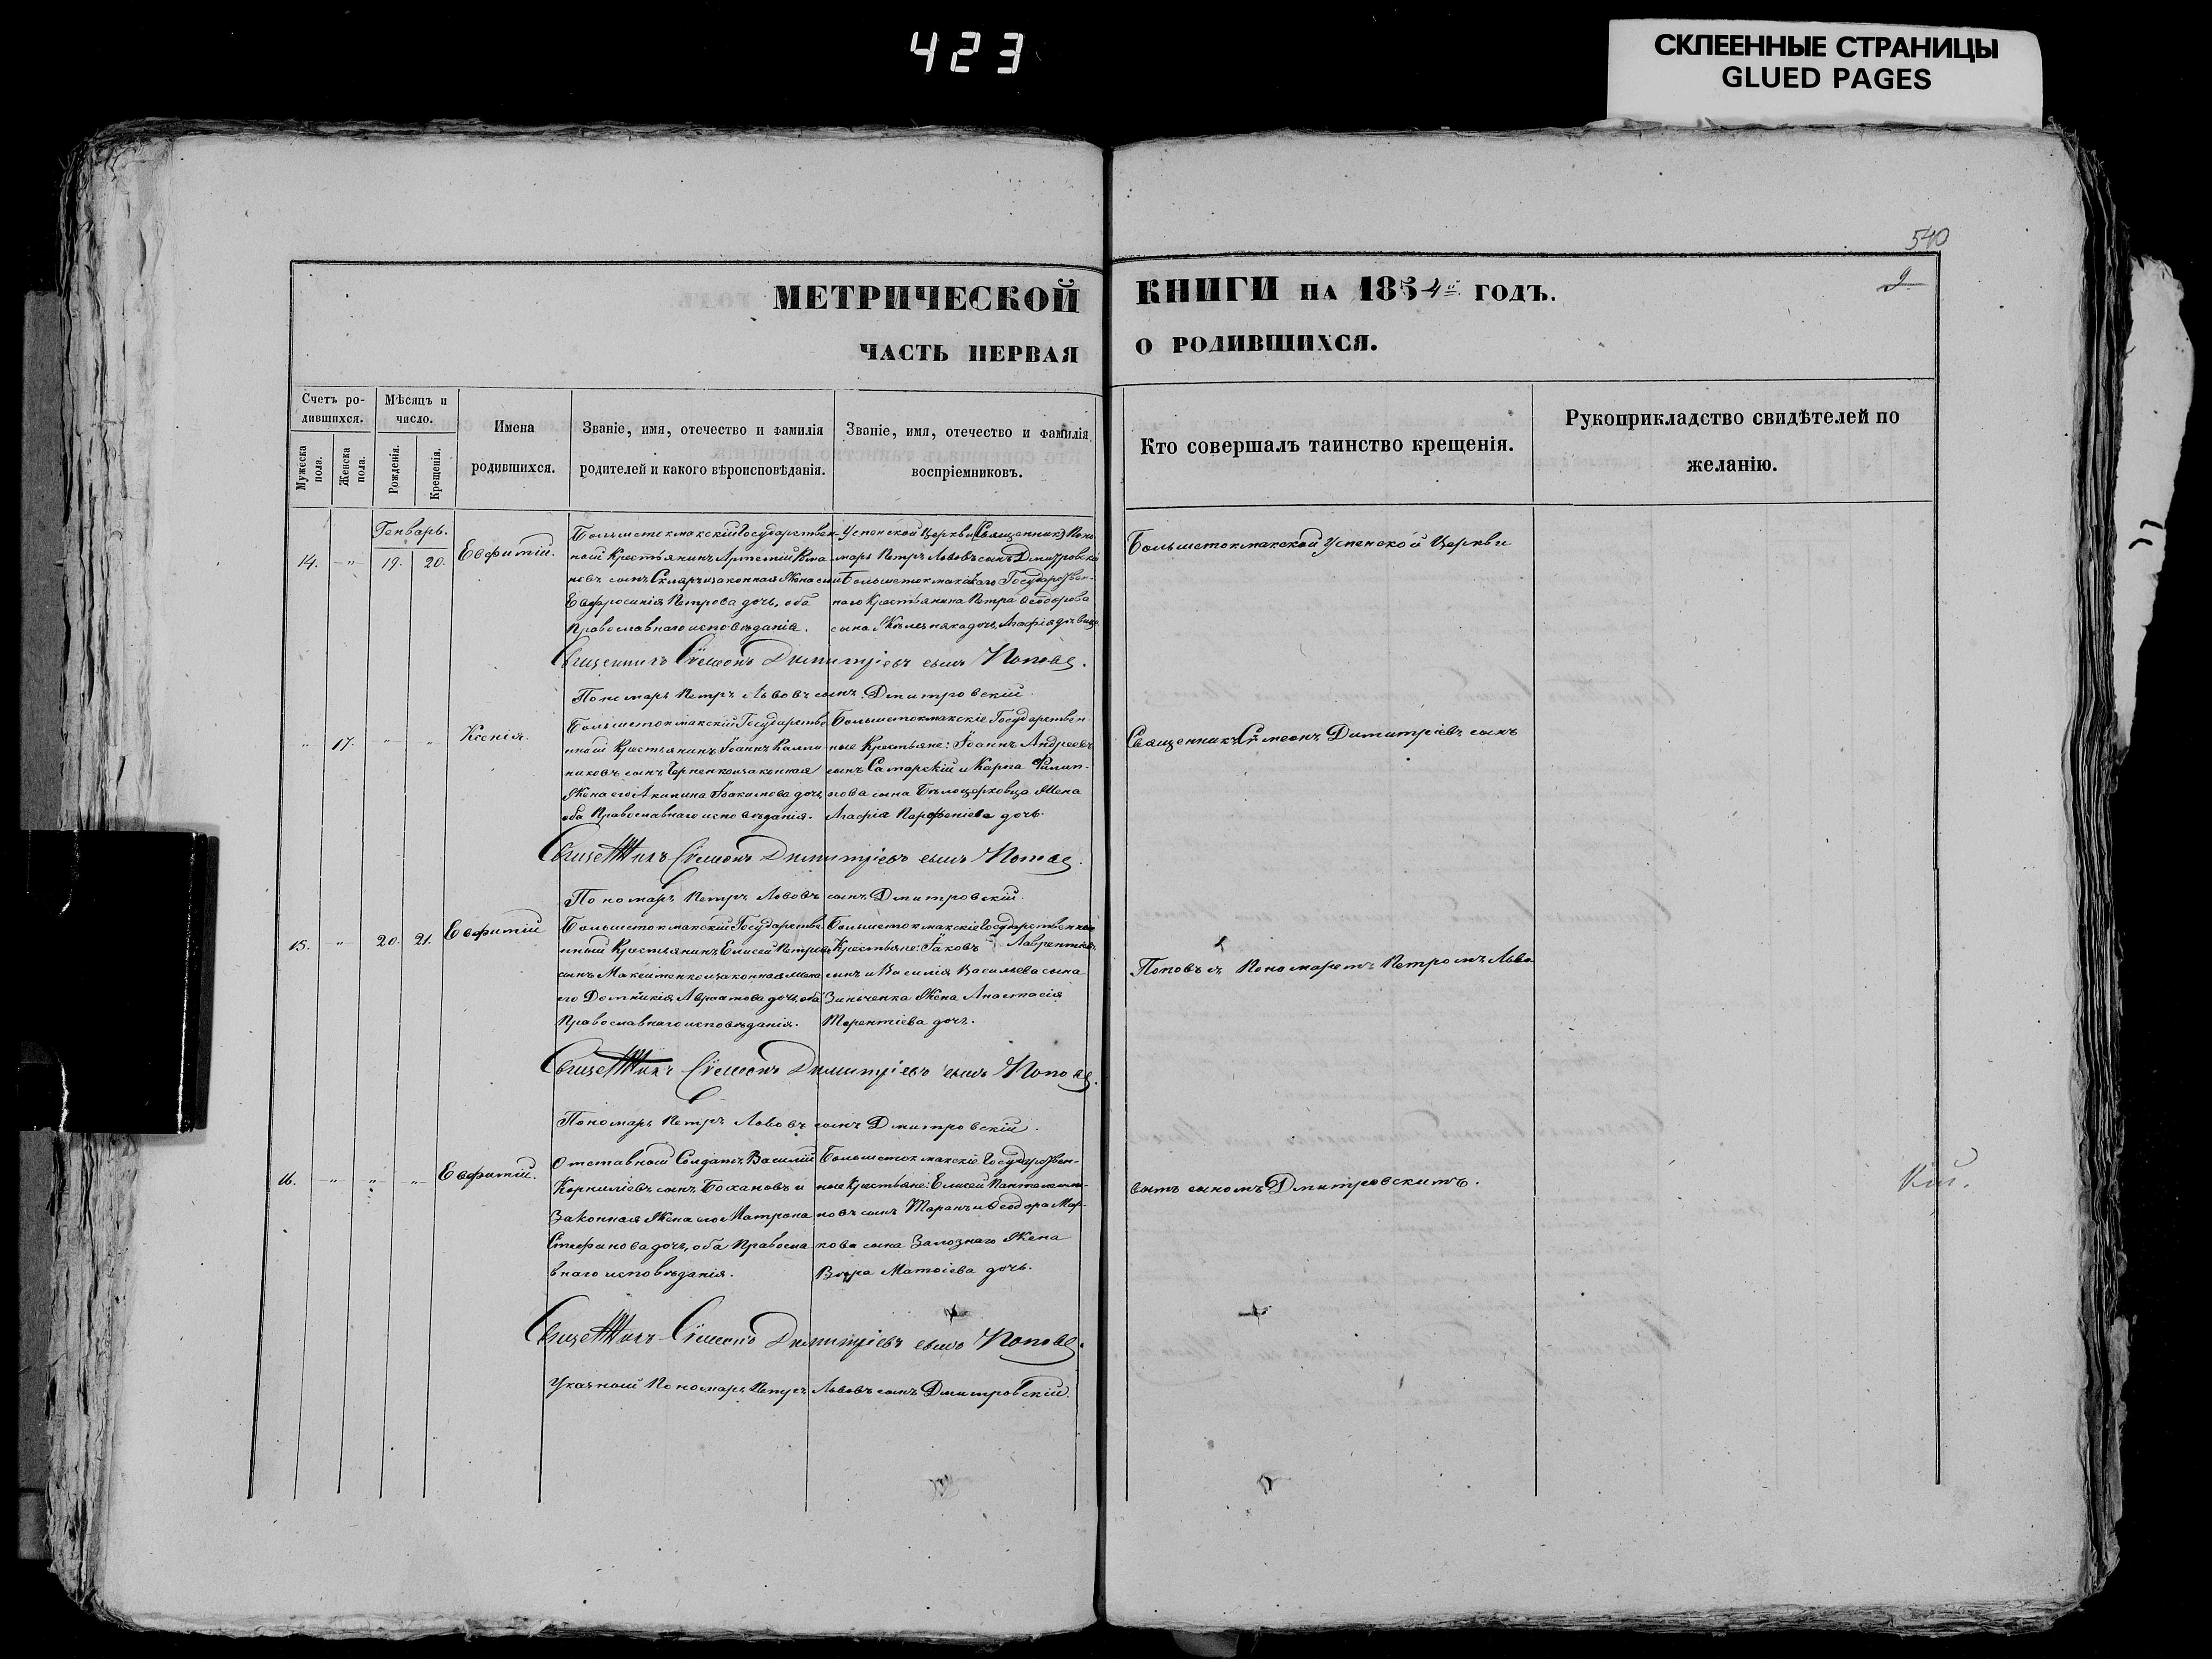 423
СКЛЕЕННЫЕ СТРАНИЦЫ
GLUED PAGES
540
9
МЕТРИЧЕСКОЙ КНИГИ НА 1854й ГОДЪ.
ЧАСТЬ ПЕРВАЯ О РОДИВШИХСЯ.
Счетъ родившихся.
Мужеска пола.
Женска пола.
Мѣсяцъ и число.
Рожденія.
Крещенія.
Имена родившихся.
Званіе, имя, отечество и фамилія
родителей и какого вѣроисповѣданія.
Званіе, имя, отечество и фамилія
воспріемниковъ.
Кто совершалъ таинство крещенія.
Рукоприкладство свидѣтелей по
желанію.
Генварь.
14. " 19. 20. Евфимій.
Большетокмакскій Государствен-
ный Крестьянинъ Артемій
сынъ и законная Жена его
Евфросинія Петрова дочь, оба
Православнаго исповѣданія.
Успенской Церкви (Священник) Поно
марь Петръ Львовъ сынъ Дмитровскій
и Большетокмакскаго Государствен-
наго Крестьянина Петра Ѳеодорова
сына дочь Агафія дѣвица
Большетокмакской Успенской Церкви
Священникъ Сѵмеонъ Димитріевъ сынъ Поповъ.
Пономарь Петръ Львовъ сынъ Дмитровскій.
" 17. " " Ксенія.
Большетокмакскій Государстве
нный Крестьянинъ Іоаннъ Калли
никовъ сынъ Черненко и законная
Жена его Акилина Іоакимова дочь,
оба Православнаго исповѣданія.
Большетокмакскіе Государствен-
ные Крестьяне: Іоаннъ Андреевъ
сынъ Самарскій и Карпа Филип-
пова сына Бѣлоцерковца Жена
Агафія Парфеніева дочь.
Священникъ Сѵмеонъ Димитріевъ сынъ
Священникъ Сѵмеонъ Димитріевъ сынъ Поповъ.
Пономарь Петръ Львовъ сынъ Дмитровскій.
15. " 20. 21. Евфимій
Большетокмакскій Государстве
нный Крестьянинъ Елисей Петровъ
сынъ Максименко и законная Жена
его Домникія Авраамова дочь, оба
Православнаго исповѣданія.
Большетокмакскіе Государственные
Крестьяне: Іаковъ Лаврентіевъ
сынъ и Василія Васильева сына
Зинченка Жена Анастасія
Терентіева дочь.
Поповъ съ Пономаремъ Петромъ Льво
Священникъ Сѵмеонъ Димитріевъ сынъ Поповъ.
Пономарь Петръ Львовъ сынъ Дмитровскій.
16. " " " Евфимій.
Отставный Солдатъ Василій
Корниліевъ сынъ Бохановъ и
Законная Жена его Матрона
Стефанова дочь, оба Правосла
внаго исповѣданія.
Большетокмакскіе Государствен-
ные Крестьяне: Елисей Пантелеимо-
новъ сынъ Таранъ и Ѳеодора Мар-
кова сына Залознаго Жена
Вѣра Матѳіева дочь.
вымъ сыномъ Дмитровскимъ.
Священникъ Сѵмеонъ Димитріевъ сынъ Поповъ.
Указный Пономарь Петръ Львовъ сынъ Дмитровскій.